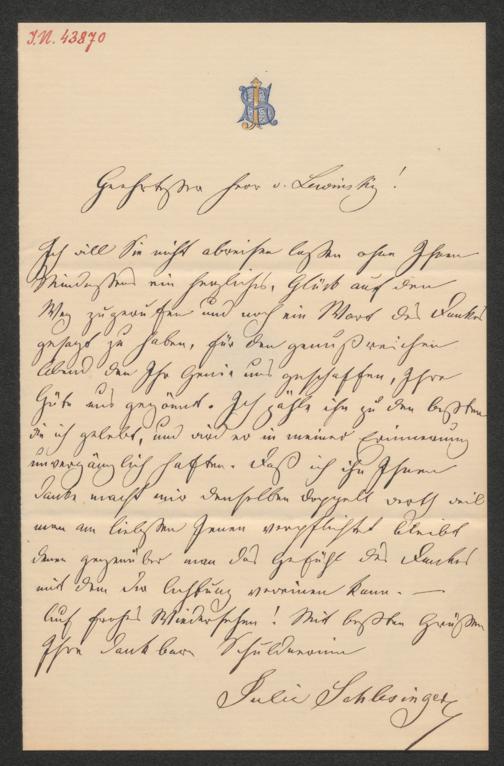 I.N. 43870
JS
Geehrtester Herr v. Lewinsky!
Ich will Sie nicht abreisen lassen ohne Ihnen
Mindestens ein herzliches, Glück auf den
Weg zugerufen und noch ein Wort des Dankes
gesagt zu haben, für den genußreichen
Abend den Ihr Genie uns geschaffen, Ihre
Güte uns gegönnt. Ich zähle ihn zu den beßten
die ich gelebt, und wird er in meiner Erinnerung
unvergänglich haften. Daß ich ihn Ihnen
danke macht mir denselben doppelt werth weil
man am liebsten Jenen verpflichtet bleibt
denen gegenüber man das Gefühl des Dankes
mit dem der Achtung vereinen kann. —
Auf frohes Wiedersehen! Mit beßten Grüßen
Ihre dankbare Schuldnerinn
Julie Schlesinger